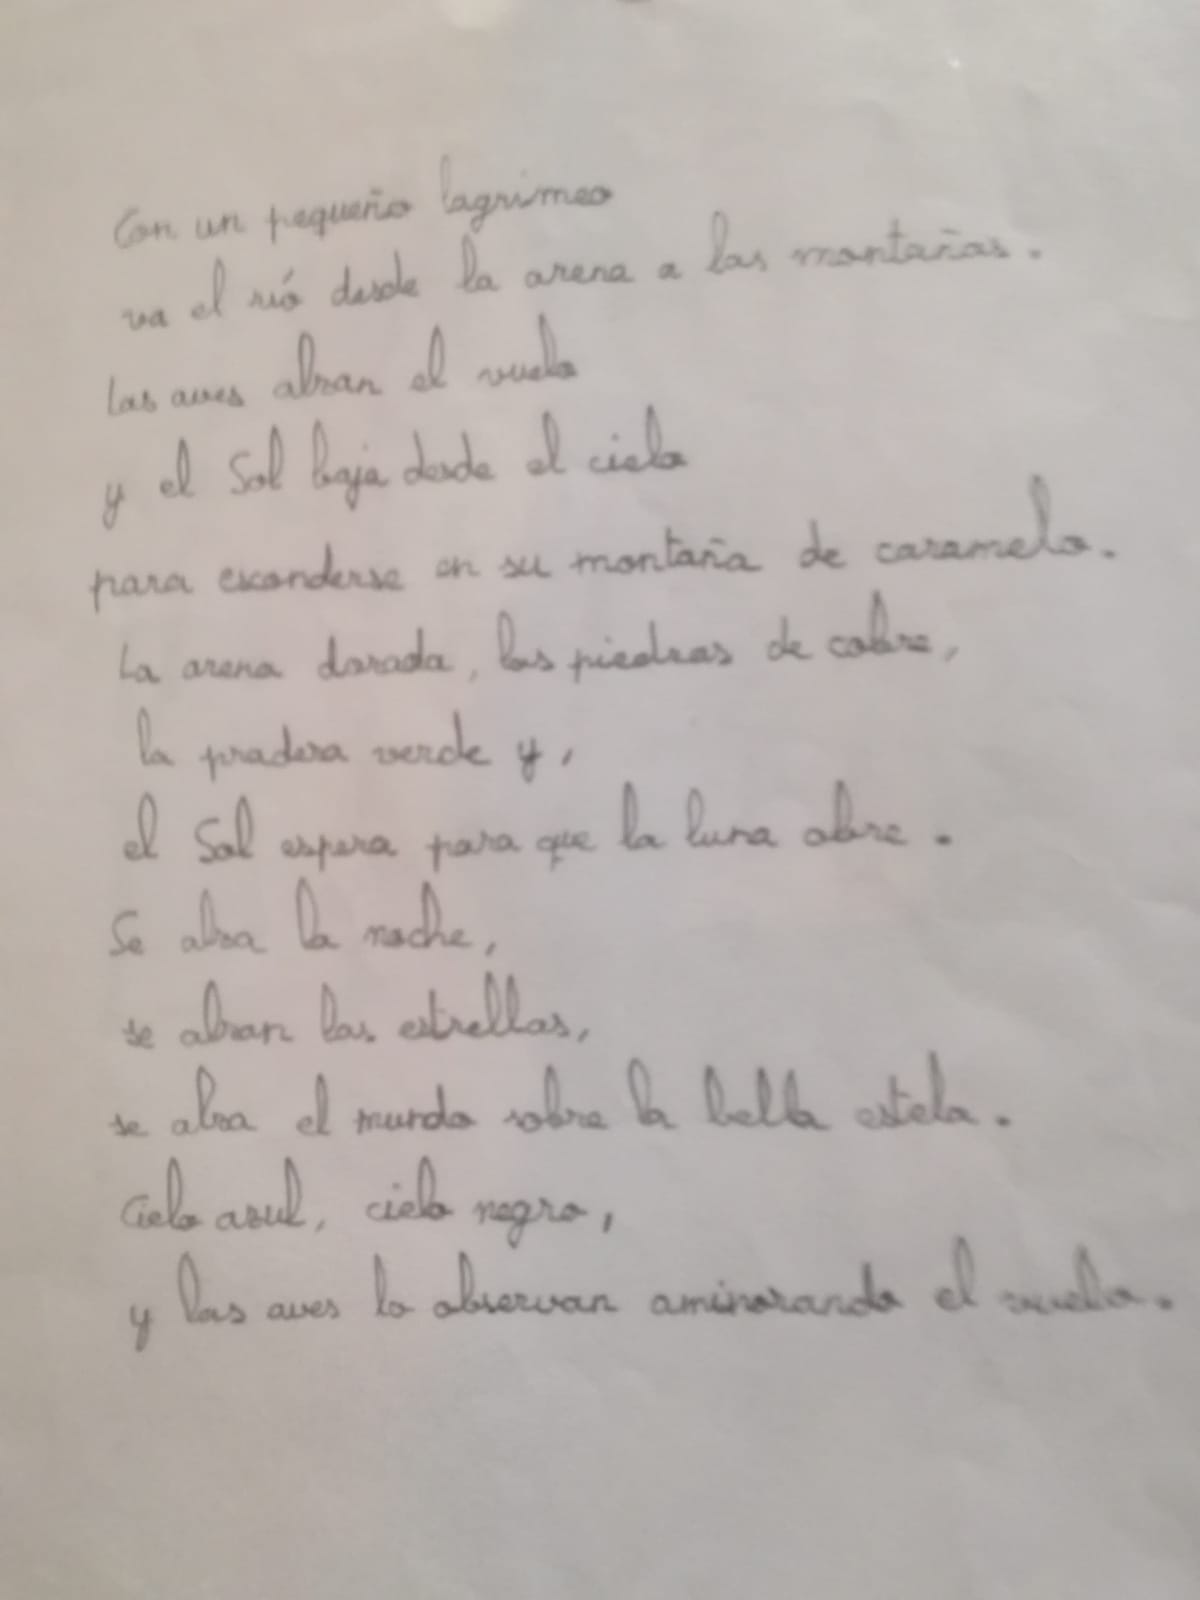 Con un pequeño lagrimeo
va el rió desde la arena a las montañas.
Las aves abran el vuelo
y el Sol baja desde el cielo
para esconderse en su montaña de caramelo.
La arena dorada, las piedras de cobre,
la pradera verde y,
el Sol espera para que la luna obre.
Se abra la noche,
se abran las estrellas,
se abra el mundo sobre la bella estela.
Cielo azul, cielo negro,
y las aves lo observan aminorando el vuelo.